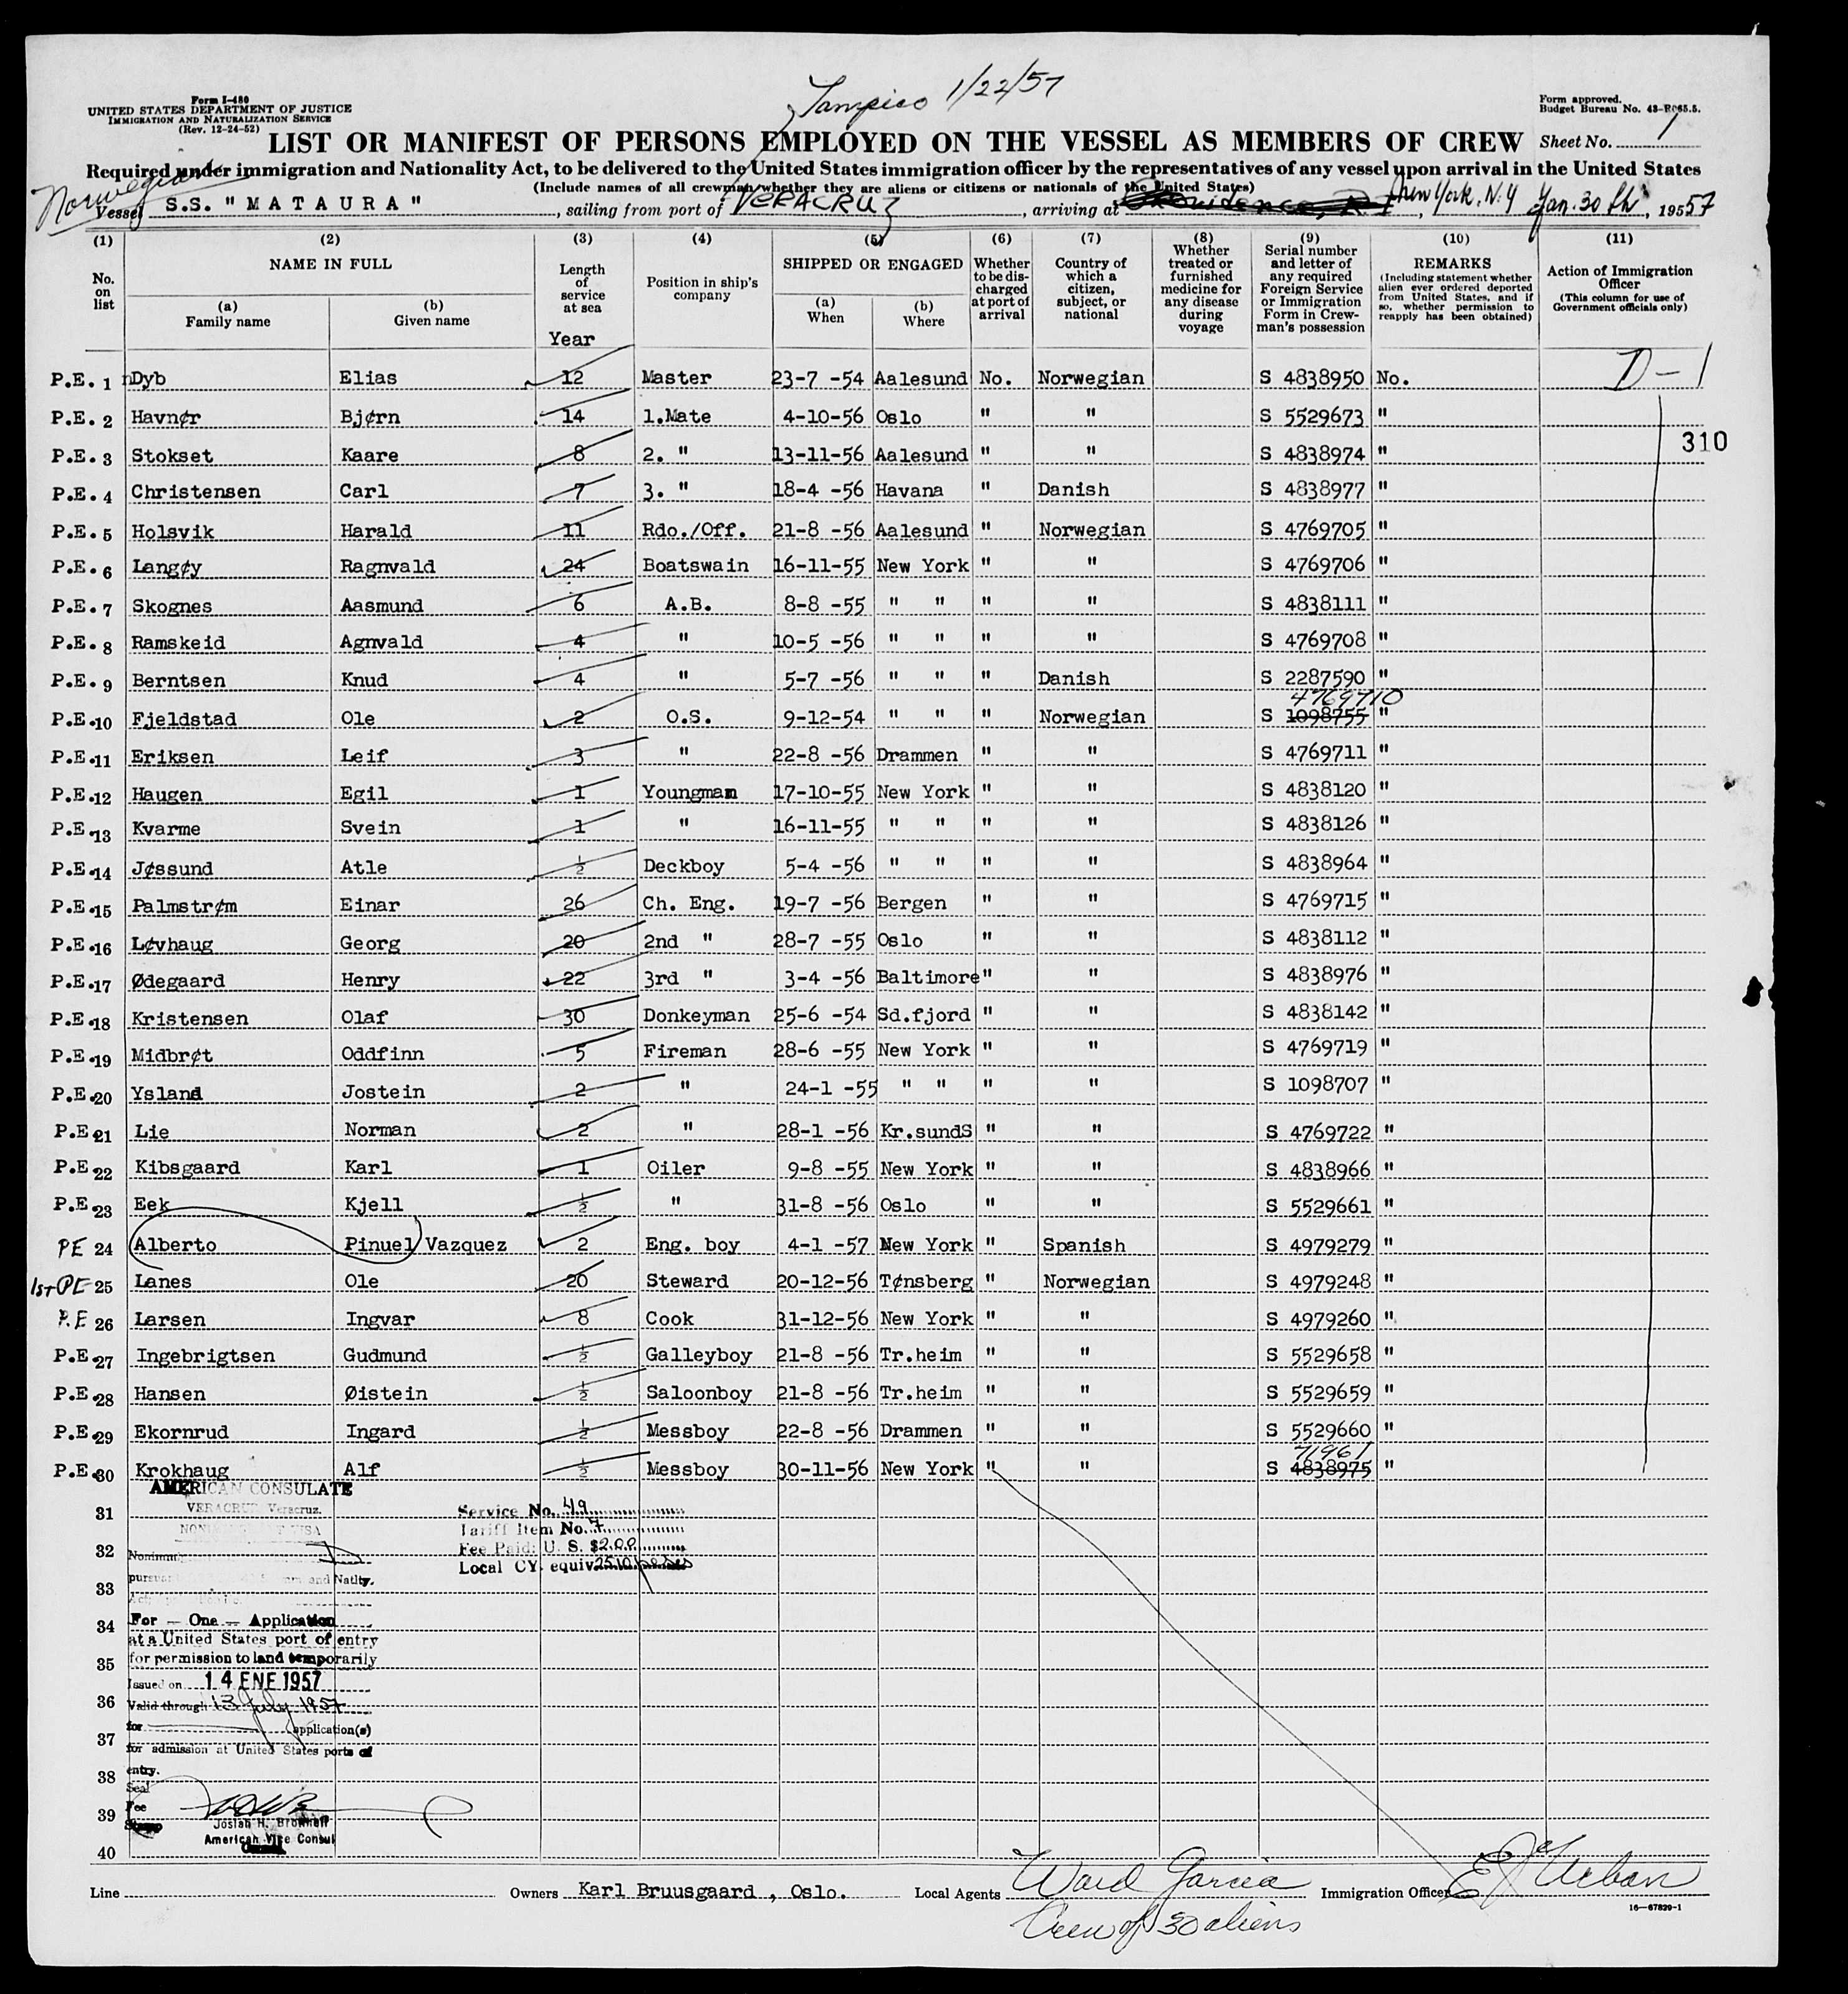 Tampico 1/22/57
Form I-480
UNITED STATES DEPARTMENT OF JUSTICE
IMMIGRATION AND NATURALIZATION SERVICE
(Rev. 12-24-52)
Form approved.
Budget Bureau No. 43-R065.5.
LIST OR MANIFEST OF PERSONS EMPLOYED ON THE VESSEL AS MEMBERS OF CREW
Sheet No. 1
Required under immigration and Nationality Act, to be delivered to the United States immigration officer by the representatives of any vessel upon arrival in the United States
(Include names of all crewman whether they are aliens or citizens or nationals of the United States)
Norwegian
Vessel S.S. "MATAURA", sailing from port of VERACRUZ, arriving at Providence, R.I. New York, N.Y Jan. 30 th, 195 57
(1) (2) (3) (4) (5) (6) (7) (8) (9) (10) (11)
No. on list
NAME IN FULL
(a) Family name
(b) Given name
Length of service at sea
Year
Position in ship's company
SHIPPED OR ENGAGED
(a) When
(b) Where
Whether to be discharged at port of arrival
Country of which a citizen, subject, or national
Whether treated or furnished medicine for any disease during voyage
Serial number and letter of any required Foreign Service or Immigration Form in Crewman's possession
REMARKS
(Including statement whether alien ever ordered deported from United States, and if so, whether permission to reapply has been obtained)
Action of Immigration Officer
(This column for use of Government officials only)
P.E. 1 Dyb Elias 12 Master 23-7 -54 Aalesund No. Norwegian S 4838950 No. D-1
P.E. 2 Havnør Bjørn 14 1.Mate 4-10-56 Oslo " " S 5529673 "
310
P.E. 3 Stokset Kaare 8 2. " 13-11-56 Aalesund " " S 4838974 "
P.E. 4 Christensen Carl 7 3. " 18-4 -56 Havana " Danish S 4838977 "
P.E. 5 Holsvik Harald 11 Rdo./Off. 21-8 -56 Aalesund " Norwegian S 4769705 "
P.E. 6 Langøy Ragnvald 24 Boatswain 16-11-55 New York " " S 4769706 "
P.E. 7 Skognes Aasmund 6 A.B. 8-8 -55 " " " " S 4838111 "
P.E. 8 Ramskeid Agnvald 4 " 10-5 -56 " " " " S 4769708 "
P.E. 9 Berntsen Knud 4 " 5-7 -56 " " " Danish S 2287590 "
4769710
P.E. 10 Fjeldstad Ole 2 O.S. 9-12-54 " " " Norwegian S 1098755 "
P.E. 11 Eriksen Leif 3 " 22-8 -56 Drammen " " S 4769711 "
P.E. 12 Haugen Egil 1 Youngman 17-10-55 New York " " S 4838120 "
P.E. 13 Kvarme Svein 1 " 16-11-55 " " " " S 4838126 "
P.E. 14 Jøssund Atle ½ Deckboy 5-4 -56 " " " " S 4838964 "
P.E. 15 Palmstrøm Einar 26 Ch. Eng. 19-7 -56 Bergen " " S 4769715 "
P.E. 16 Løvhaug Georg 20 2nd " 28-7 -55 Oslo " " S 4838112 "
P.E. 17 Ødegaard Henry 22 3rd " 3-4 -56 Baltimore " " S 4838976 "
P.E. 18 Kristensen Olaf 30 Donkeyman 25-6 -54 Sd.fjord " " S 4838142 "
P.E. 19 Midbrøt Oddfinn 5 Fireman 28-6 -55 New York " " S 4769719 "
P.E. 20 Ysland Jostein 2 " 24-1 -55 " " " " S 1098707 "
P.E. 21 Lie Norman 2 " 28-1 -56 Kr.sundS " " S 4769722 "
P.E. 22 Kibsgaard Karl 1 Oiler 9-8 -55 New York " " S 4838966 "
P.E. 23 Eek Kjell ½ " 31-8 -56 Oslo " " S 5529661 "
PE 24 Alberto Pinuel Vazquez 2 Eng. boy 4-1 -57 New York " Spanish S 4979279 "
1st PE 25 Lanes Ole 20 Steward 20-12-56 Tønsberg " Norwegian S 4979248 "
P.E 26 Larsen Ingvar 8 Cook 31-12-56 New York " " S 4979260 "
P.E. 27 Ingebrigtsen Gudmund ½ Galleyboy 21-8 -56 Tr.heim " " S 5529658 "
P.E. 28 Hansen Øistein ½ Saloonboy 21-8 -56 Tr.heim " " S 5529659 "
P.E. 29 Ekornrud Ingard ½ Messboy 22-8 -56 Drammen " " S 5529660 "
71961
P.E. 30 Krokhaug Alf ½ Messboy 30-11-56 New York " " S 4838975 "
AMERICAN CONSULATE
VERACRUZ, Veracruz.
31
Service No. 49
Tariff Item No. 7
32
Fee Paid: U. S. $2.00
Local CY. equiv. 25.10 pesos
and Natity.
33
For — One — Application
34
at a United States port of entry
for permission to land temporarily
35
Issued on 14 ENE 1957
36
Valid through 13 July 1957
for application(s)
37
for admission at United States ports of
entry.
38
Seal
Fee
39
Stamp
Josiah H. Brownell
American Vice Consul
40
Line Owners Karl Bruusgaard , Oslo. Local Agents Ward Garcia Immigration Officer E J Urban
16—67829-1
Crew of 30 aliens